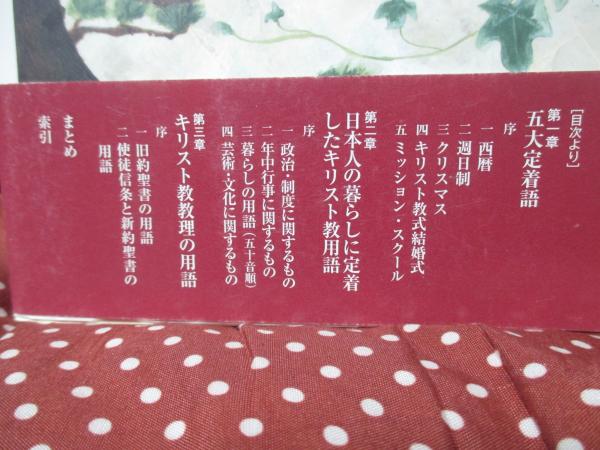 [目次より]
第一章
五大定着語
序
一 西暦
二 週日制
三 クリスマス
四 キリスト教式結婚式
五 ミッション・スクール
第二章
日本人の暮らしに定着
したキリスト教用語
序
一 政治・制度に関するもの
二 年中行事に関するもの
三 暮らしの用語(五十音順)
四 芸術・文化に関するもの
第三章
キリスト教教理の用語
序
一 旧約聖書の用語
二 使徒信条と新約聖書の
用語
まとめ
索引